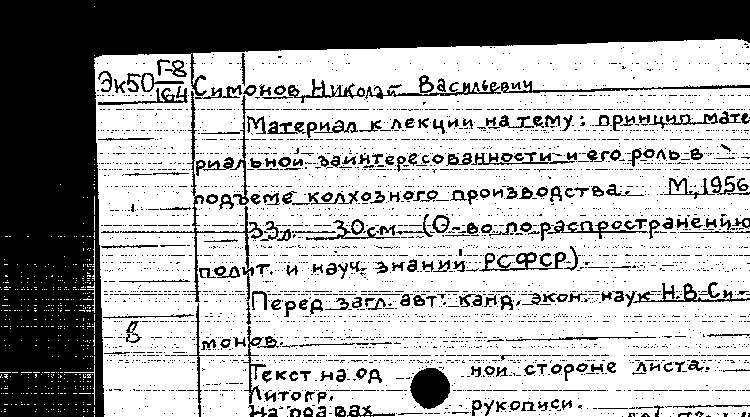 Эк50 Г-8/164 Симонов, Николай Васильевич
Материал к лекции на тему: принцип мате
риальной заинтересованности и его роль в
подъеме колхозного производства. М., 1956
33л. 30см. (О-во по распространению
полит. и науч. знаний РСФСР).
Перед загл. авт: канд. экон. наук Н.В.Си-
монов.
Текст на од ной стороне листа.
Литогр.
На правах рукописи.